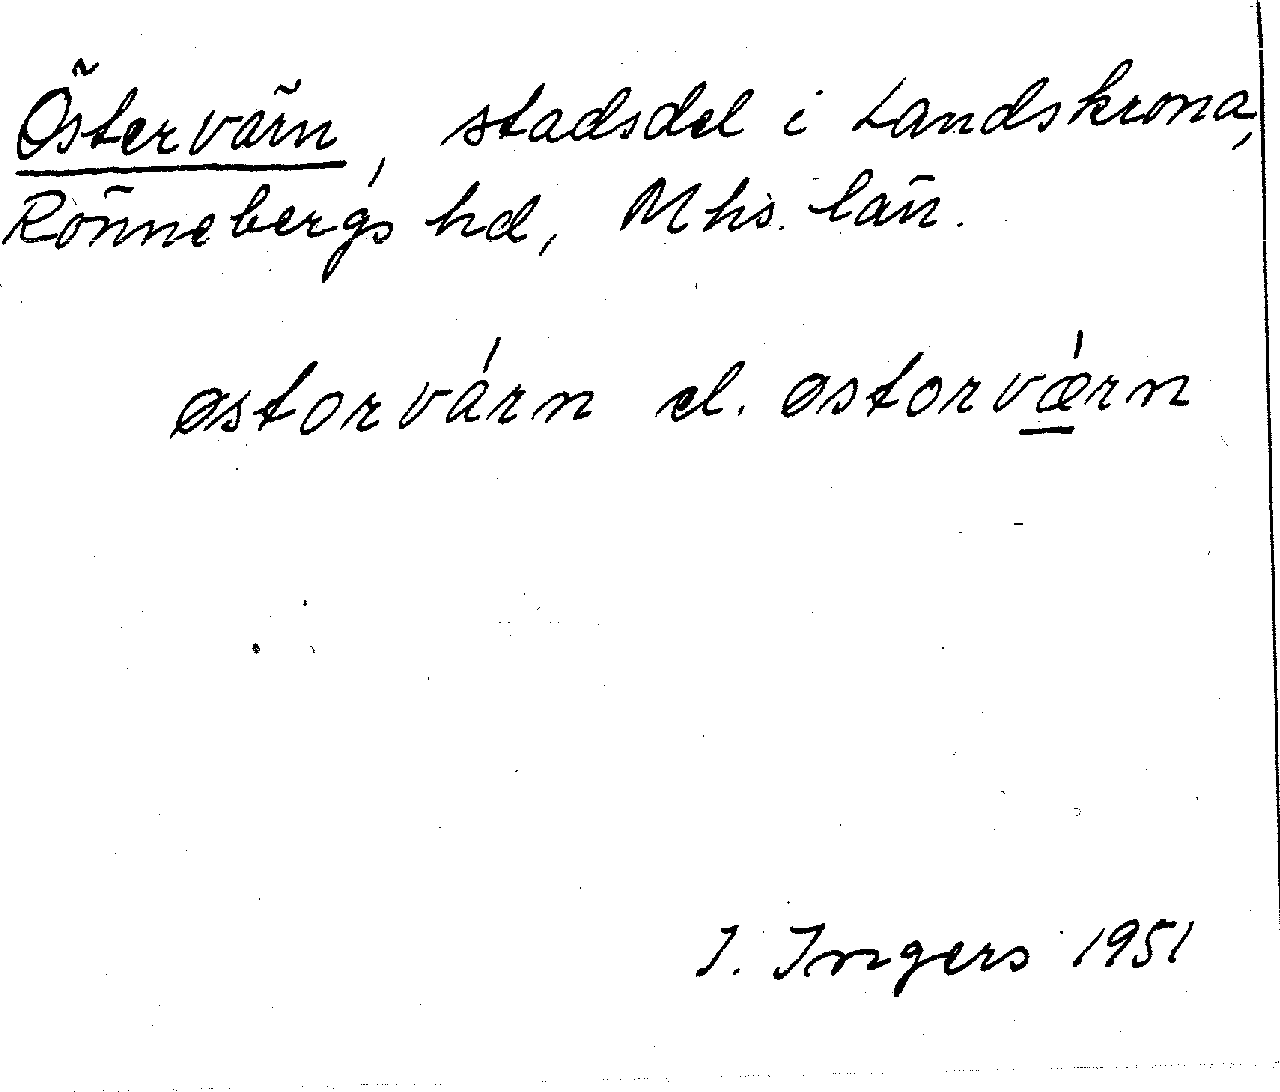 Östervärn, stadsdel i Landskrona,
Rönnebergs hd, Mhs. län.
østorvá́rn el. østorvǽrn
I. Ingers 1951